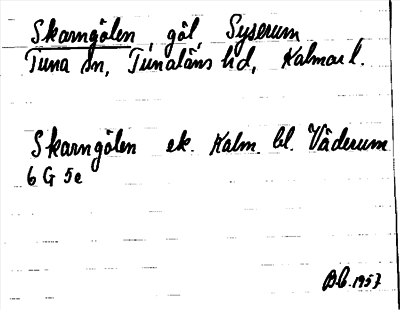 Skarngölen, göl, Syserum
Tuna sn, Tunaläns hd, Kalmar l.
Skarngölen ek. Kalm. bl. Väderum
6 G 5e
1957